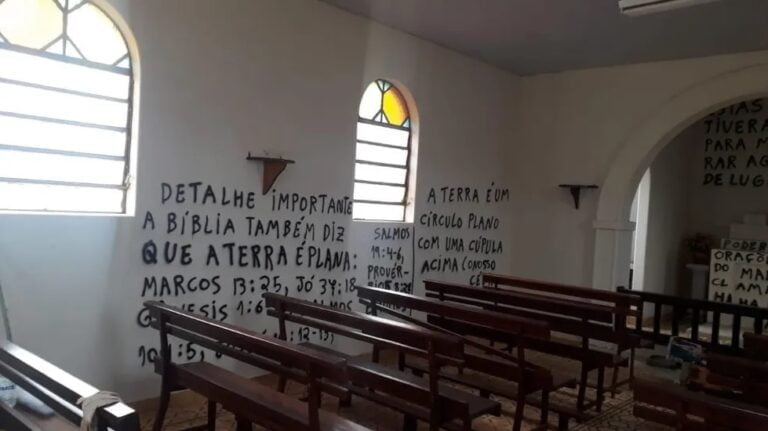 DETALHE IMPORTANTE
A BÍBLIA TAMBÉM DIZ
QUE A TERRA É PLANA:
MARCOS 13:25, JÓ 37:18
1:6
12-13,
1:5,
SALMOS
19:4-6,
PROVÉR-
A TERRA É UM
CÍRCULO PLANO
COM UMA CÚPULA
ACIMA (O NOSSO
CÉ
ESTAS
TIVERA
PARA M
RAR AG
DE LUG
PODER
ORAÇÕE
DO MA
CL AMA
HA